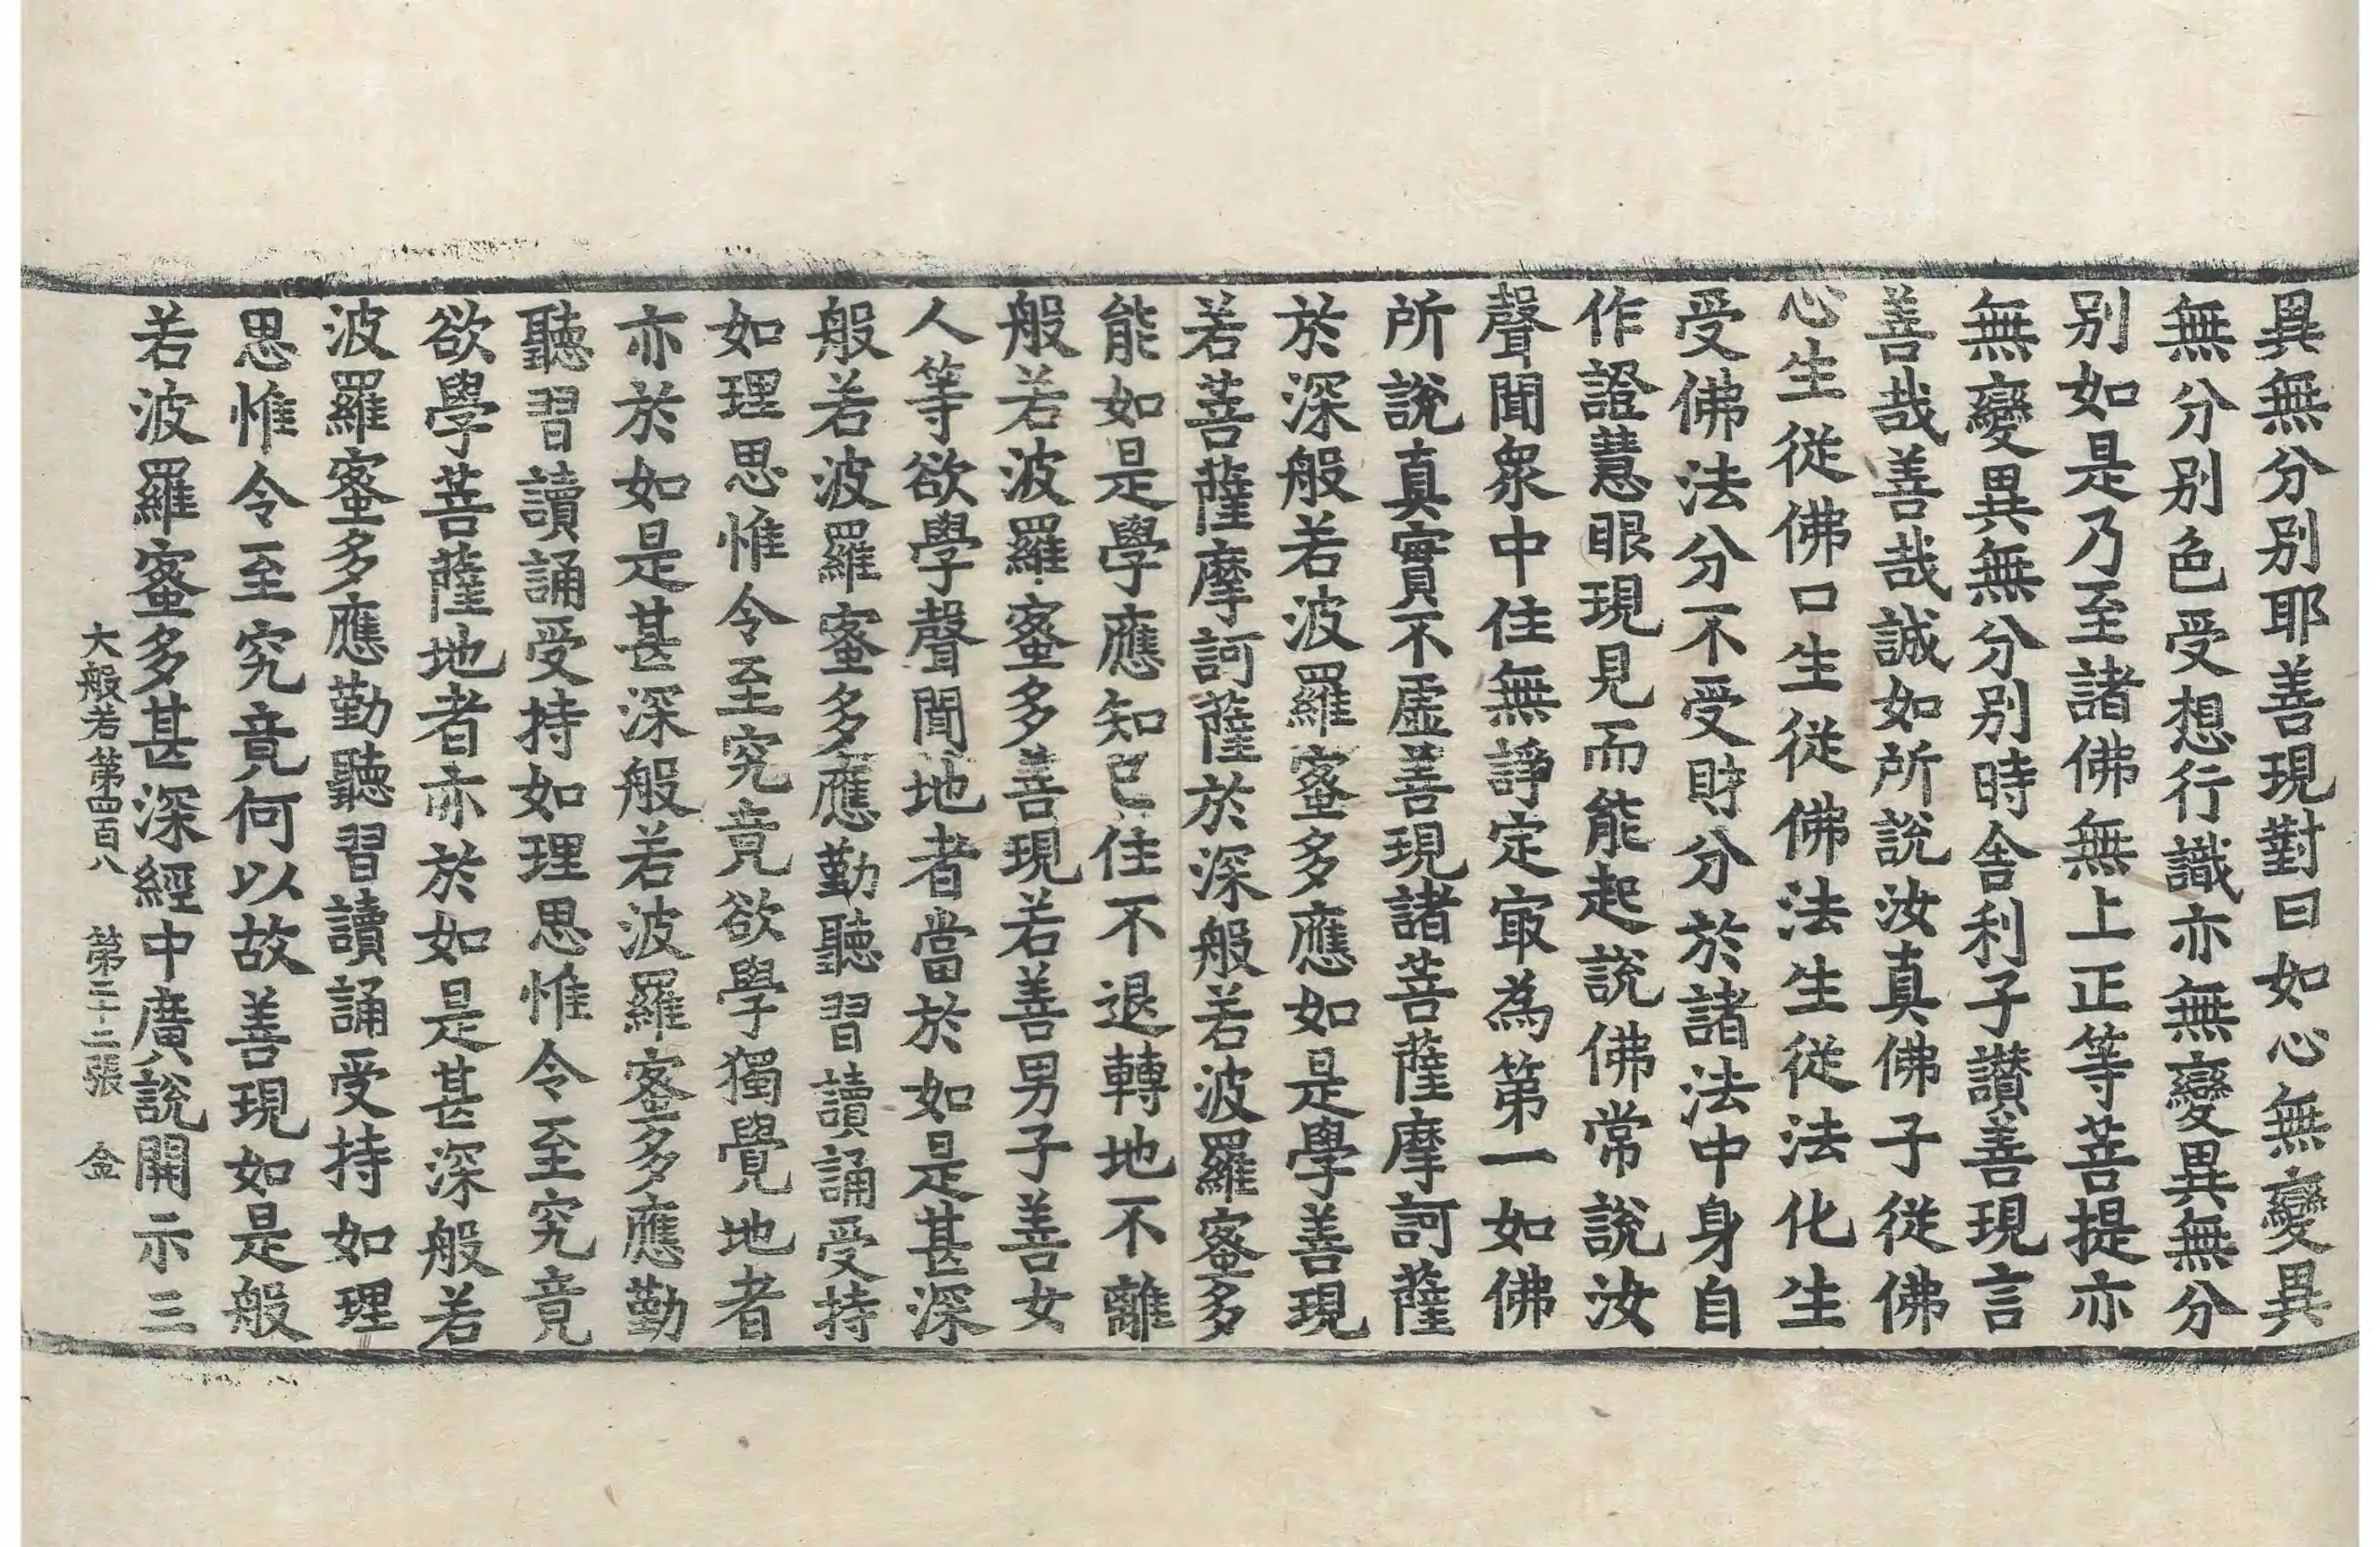 異無分別耶善現對曰如心無變異
無分別色受想行識亦無變異無分
別如是乃至諸佛無上正等菩提亦
無變異無分別時舍利子讚善現言
善哉善哉誠如所說汝真佛子從佛
心生從佛口生從佛法生從法化生
受佛法分不受財分於諸法中身自
作證慧眼現見而能起說佛常說汝
聲聞衆中住無諍定㝡為第一如佛
所說真實不虛善現諸菩薩摩訶薩
於深般若波羅蜜多應如是學善現
若菩薩摩訶薩於深般若波羅蜜多
能如是學應知已住不退轉地不離
般若波羅蜜多善現若善男子善女
人等欲學聲聞地者當於如是甚深
般若波羅蜜多應勤聽習讀誦受持
如理思惟令至究竟欲學獨覺地者
亦於如是甚深般若波羅蜜多應勤
聽習讀誦受持如理思惟令至究竟
欲學菩薩地者亦於如是甚深般若
波羅蜜多應勤聽習讀誦受持如理
思惟令至究竟何以故善現如是般
若波羅蜜多甚深經中廣說開示三
大般若第四百八 第二十二張 金